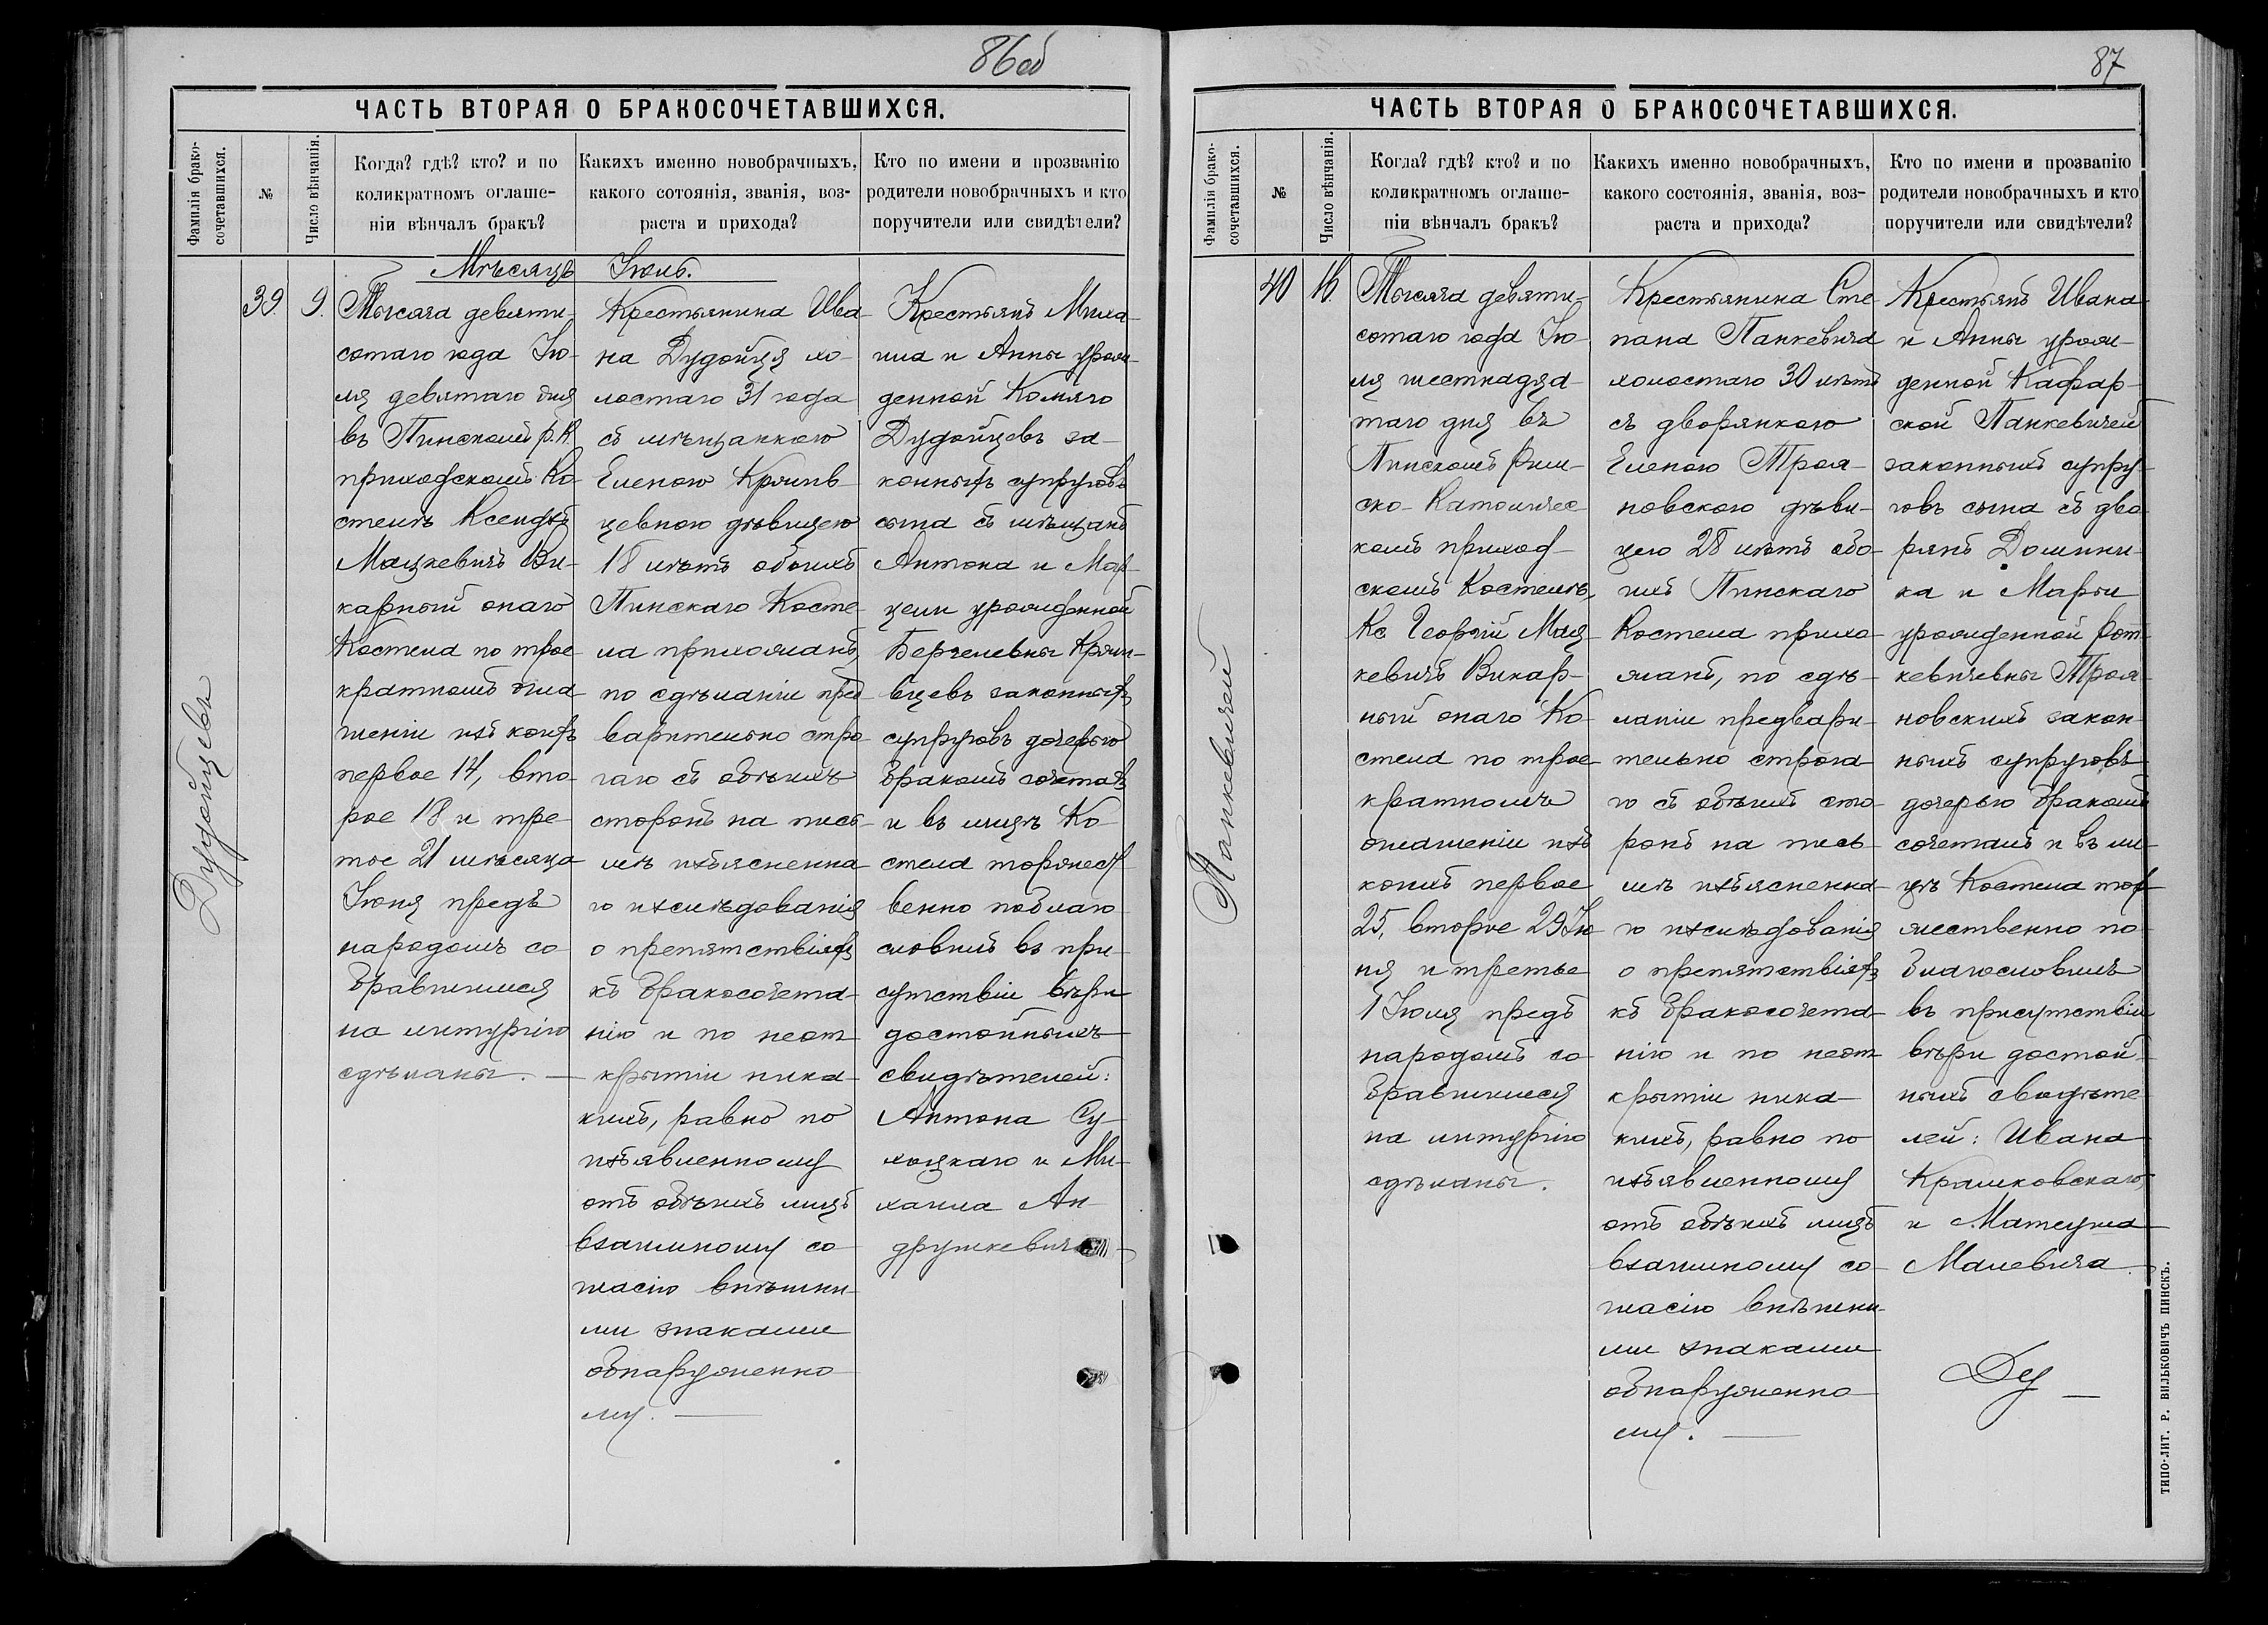 86об
ЧАСТЬ ВТОРАЯ О БРАКОСОЧЕТАВШИХСЯ.
Фамилія брако-
сочетавшихся.
№
Число вѣнчанія.
Когда? гдѣ? кто? и по
коликратномъ оглаше-
ніи вѣнчалъ бракъ?
Какихъ именно новобрачныхъ,
какого сотоянія, званія, воз-
раста и прихода?
Кто по имени и прозванію
родители новобрачныхъ и кто
поручители или свидѣтели?
Мѣсяцъ Іюль.
Дудойцевъ
39.
9.
Тысяча девяти-
сотаго года Ію-
ля девятаго дня
въ Пинскомъ р. К.
приходскомъ Ко-
стелѣ Ксендзъ
Мацкевичъ Ви-
карный онаго
Костела по трое-
кратномъ огла-
шеніи изъ коихъ
первое 14, вто-
рое 18 и тре-
тое 21 мѣсяца
Іюня предъ
народомъ со-
бравшимся
на литургію
сдѣланы. —
Крестьянина Ива-
на Дудойця хо-
лостаго 31 года
съ мѣщанкою
Еленою Кривв-
цевною дѣвицею
18 лѣтъ обоихъ
Пинскаго Косте-
ла прихожанъ,
по сдѣланіи пред-
варительно стро-
гаго съ обѣихъ
сторонъ на пись-
мѣ изъясненна-
го изслѣдованія
о препятствіяхъ
къ бракосочета-
нію и по неот-
крытіи ника-
кихъ, равно по
изъявленному
отъ обѣихъ лицъ
взаимному со-
гласію внѣшни-
ми знаками
обнаруженно-
му. —
Крестьянъ Миха-
ила и Анны урож-
денной Комяго
Дудойцевъ за-
конныхъ супруговъ
сына съ мѣщанъ
Антона и Мар-
цели урожденной
законныхъ
супруговъ дочерью
бракомъ сочеталъ
и въ лицѣ Ко-
стела торжест-
венно поблаго-
словилъ въ при-
сутствіи вѣры
достойныхъ
свидѣтелей:
Антона Су-
хоцкаго и Ми-
хаила Ан-
друшкевича —
87
ЧАСТЬ ВТОРАЯ О БРАКОСОЧЕТАВШИХСЯ.
Фамилія брако-
сочетавшихся.
№
Число вѣнчанія.
Когда? гдѣ? кто? и по
коликратномъ оглаше-
ніи вѣнчалъ бракъ?
Какихъ именно новобрачныхъ,
какого состоянія, званія, воз-
раста и прихода?
Кто по имени и прозванію
родители новобрачныхъ и кто
поручители или свидѣтели?
Панкевичей
40
16.
Тысяча девяти-
сотаго года Ію-
ля шестнадца-
таго дня въ
Пинскомъ Рим-
ско-Католичес-
комъ приход-
скомъ Костелѣ,
Кс. Георгій Мац-
кевичъ Викар-
ный онаго Ко-
стела по трое-
кратномъ
оглашеніи изъ
коихъ первое
25, второе 29 Ію-
ня и третье
1 Іюля предъ
народомъ со-
бравшимся
на литургію
сдѣланы.
Крестьянина Сте-
пана Панкевича
холостаго 30 лѣтъ
съ дворянкою
Еленою Троя-
новскою дѣви-
цею 28 лѣтъ обо-
ихъ Пинскаго
Костела прихо-
жанъ, по сдѣ-
ланіи предвари-
тельно строга-
го съ обѣихъ сто-
ронъ на пись-
мѣ изъясненна-
го изслѣдованія
о препятствіяхъ
къ бракосочета-
нію и по неот-
крытіи ника-
кихъ, равно по
изъявленному
отъ обѣихъ лицъ
взаимному со-
гласію внѣшни-
ми знаками
обнаруженно-
му. —
Крестьянъ Ивана
и Анны урож-
денной Кафар-
ской Панкевичей
законныхъ супру-
говъ сына съ дво-
рянъ Домини-
ка и Марьи
урожденной Рот-
кевичевны Троя-
новскихъ закон-
ныхъ супруговъ
дочерью бракомъ
сочеталъ и въ ли-
цѣ Костела тор-
жественно по-
благословилъ
въ присутствіи
вѣры достой-
ныхъ свидѣте-
лей: Ивана
Крашковскаго,
и Матеуша
Малевича.
ТИПО-ЛИТ. Р. ВИЛЬКОВИЧЪ ПИНСКЪ.